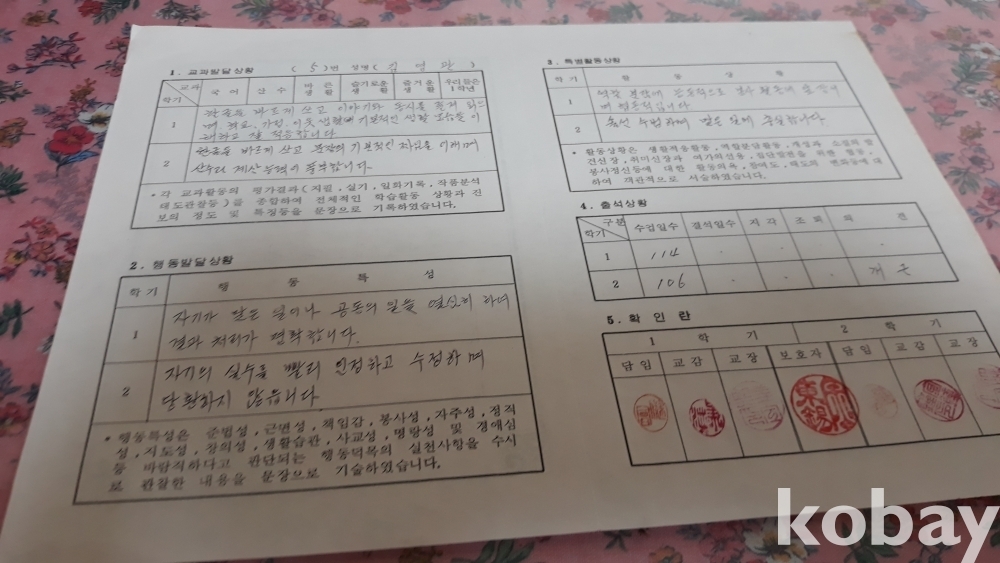 1. 교과발달상황
(5)번 성명(김영관)
교과 학기 국어 산수 바른생활 슬기로운생활 즐거운생활 우리들은1학년
1 한글을 바르게 쓰고 이야기와 동시를 즐겨 읽으
며 학교, 가정, 이웃생활에 기본적인 생활 모습을 이
해하고 잘 적응합니다.
2 한글을 바르게 쓰고 문장의 기본적인 짜임을 이해하며
산수의 계산 능력이 풍부합니다.
• 각 교과활동의 평가결과(지필, 실기, 일화기록, 작품분석
태도관찰등)를 종합하여 전체적인 학습활동 상황과 진
보의 정도 및 특징등을 문장으로 기록하였습니다.
2. 행동발달상황
학기 행동특성
1 자기가 맡은 일이나 공동의 일을 열심히 하며
결과 처리가 명확합니다.
2 자기의 실수를 빨리 인정하고 수정하며
당황하지 않습니다.
• 행동특성은 준법성, 근면성, 책임감, 봉사성, 자주성, 정직
성, 지도성, 창의성, 생활습관, 사교성, 명랑성 및 경애심
등 바람직하다고 판단되는 행동덕목의 실천사항을 수시
로 관찰한 내용을 문장으로 기술하였습니다.
3. 특별활동상황
학기 활동상황
1
며 협조적입니다.
2 율선 수범하며 맡은 일에 충실합니다.
• 활동상황은 생활적응활동, 역할분담활동, 개성과 소질의 발
견신장, 취미신장과 여가의선용, 집단발전을 위한 협동 및
봉사정신등에 대한 활동의욕, 참여도, 태도의 변화등에 대
하여 객관적으로 서술하였습니다.
4. 출석상황
구분 학기 수업일수 결석일수 지각 조퇴 의견
1 114 . . .
2 106 . . . 개근
5. 확인란
1학기 2학기
담임 교감 교장 보호자 담임 교감 교장
kobay